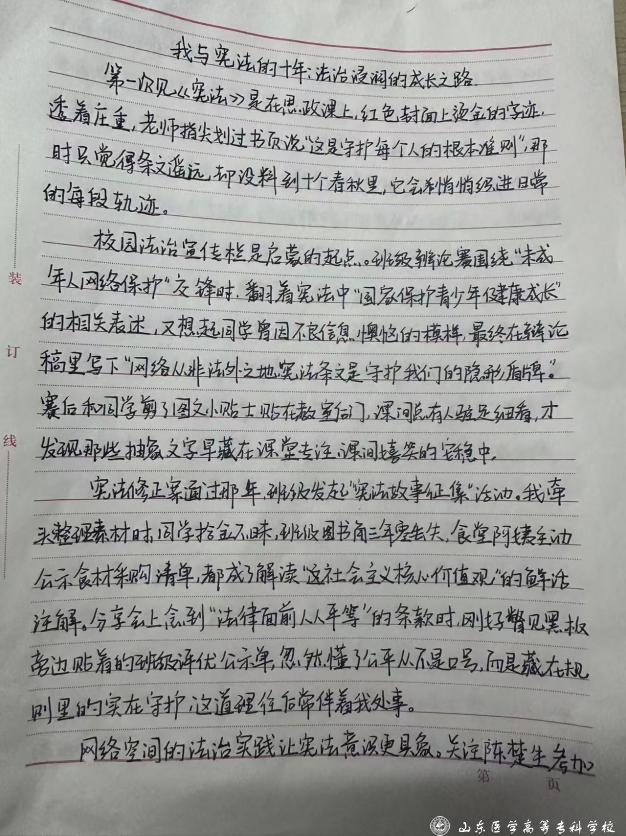 我与宪法的十年:法治浸润的成长之路
第一次见《宪法》是在思政课上,红色封面上烫金的字迹
透着庄重,老师指尖划过书页说"这是守护每个人的根本准则",那
时只觉得条文遥远,却没料到十个春秋里,它会悄悄织进日常
的每段轨迹。
校园法治宣传栏是启蒙的起点。班级辩论赛围绕"未成
年人网络保护"交锋时,翻着宪法中"国家保护青少年健康成长"
的相关表述,又想起同学曾因不良信息懊恼的模样,最终在辩论
稿里写下"网络从非法外之地,宪法条文是守护我们的隐形盾牌。"
赛后和同学剪了图文小贴士贴在教室后门,课间总有人驻足细看,才
发现那些抽象文字早藏在课堂专注、课间嬉笑的安稳中。
宪法修正案通过那年,班级发起"宪法故事征集"活动。我牵
头整理素材时,同学拾金不昧,班级图书角三年零丢失,食堂阿姨主动
公示食材采购清单,都成了解读"社会主义核心价值观"的鲜活
注解。分享会上念到"法律面前人人平等"的条款时,刚好瞥见黑板
旁边贴着的班级评优公示单,忽然懂了公平从不是口号,而是藏在规
则里的实在守护,这道理往后常伴着我处事。
网络空间的法治实践让宪法意识更具象。关注陈楚生参加
装
订
线
第 页
山东医学高等专科学校